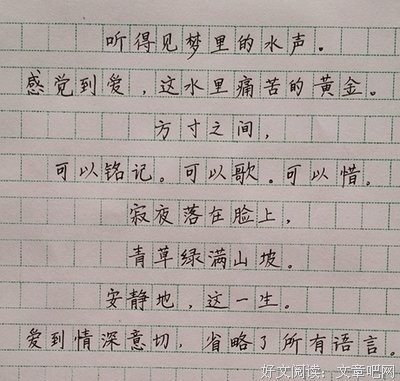 听得见梦里的水声。
感觉到爱，这水里痛苦的黄金。
方寸之间，
可以铭记。可以歌。可以惜。
寂夜落在脸上，
青草绿满山坡。
安静地，这一生。
爱到情深意切，省略了所有语言。
好文阅读：文章吧网